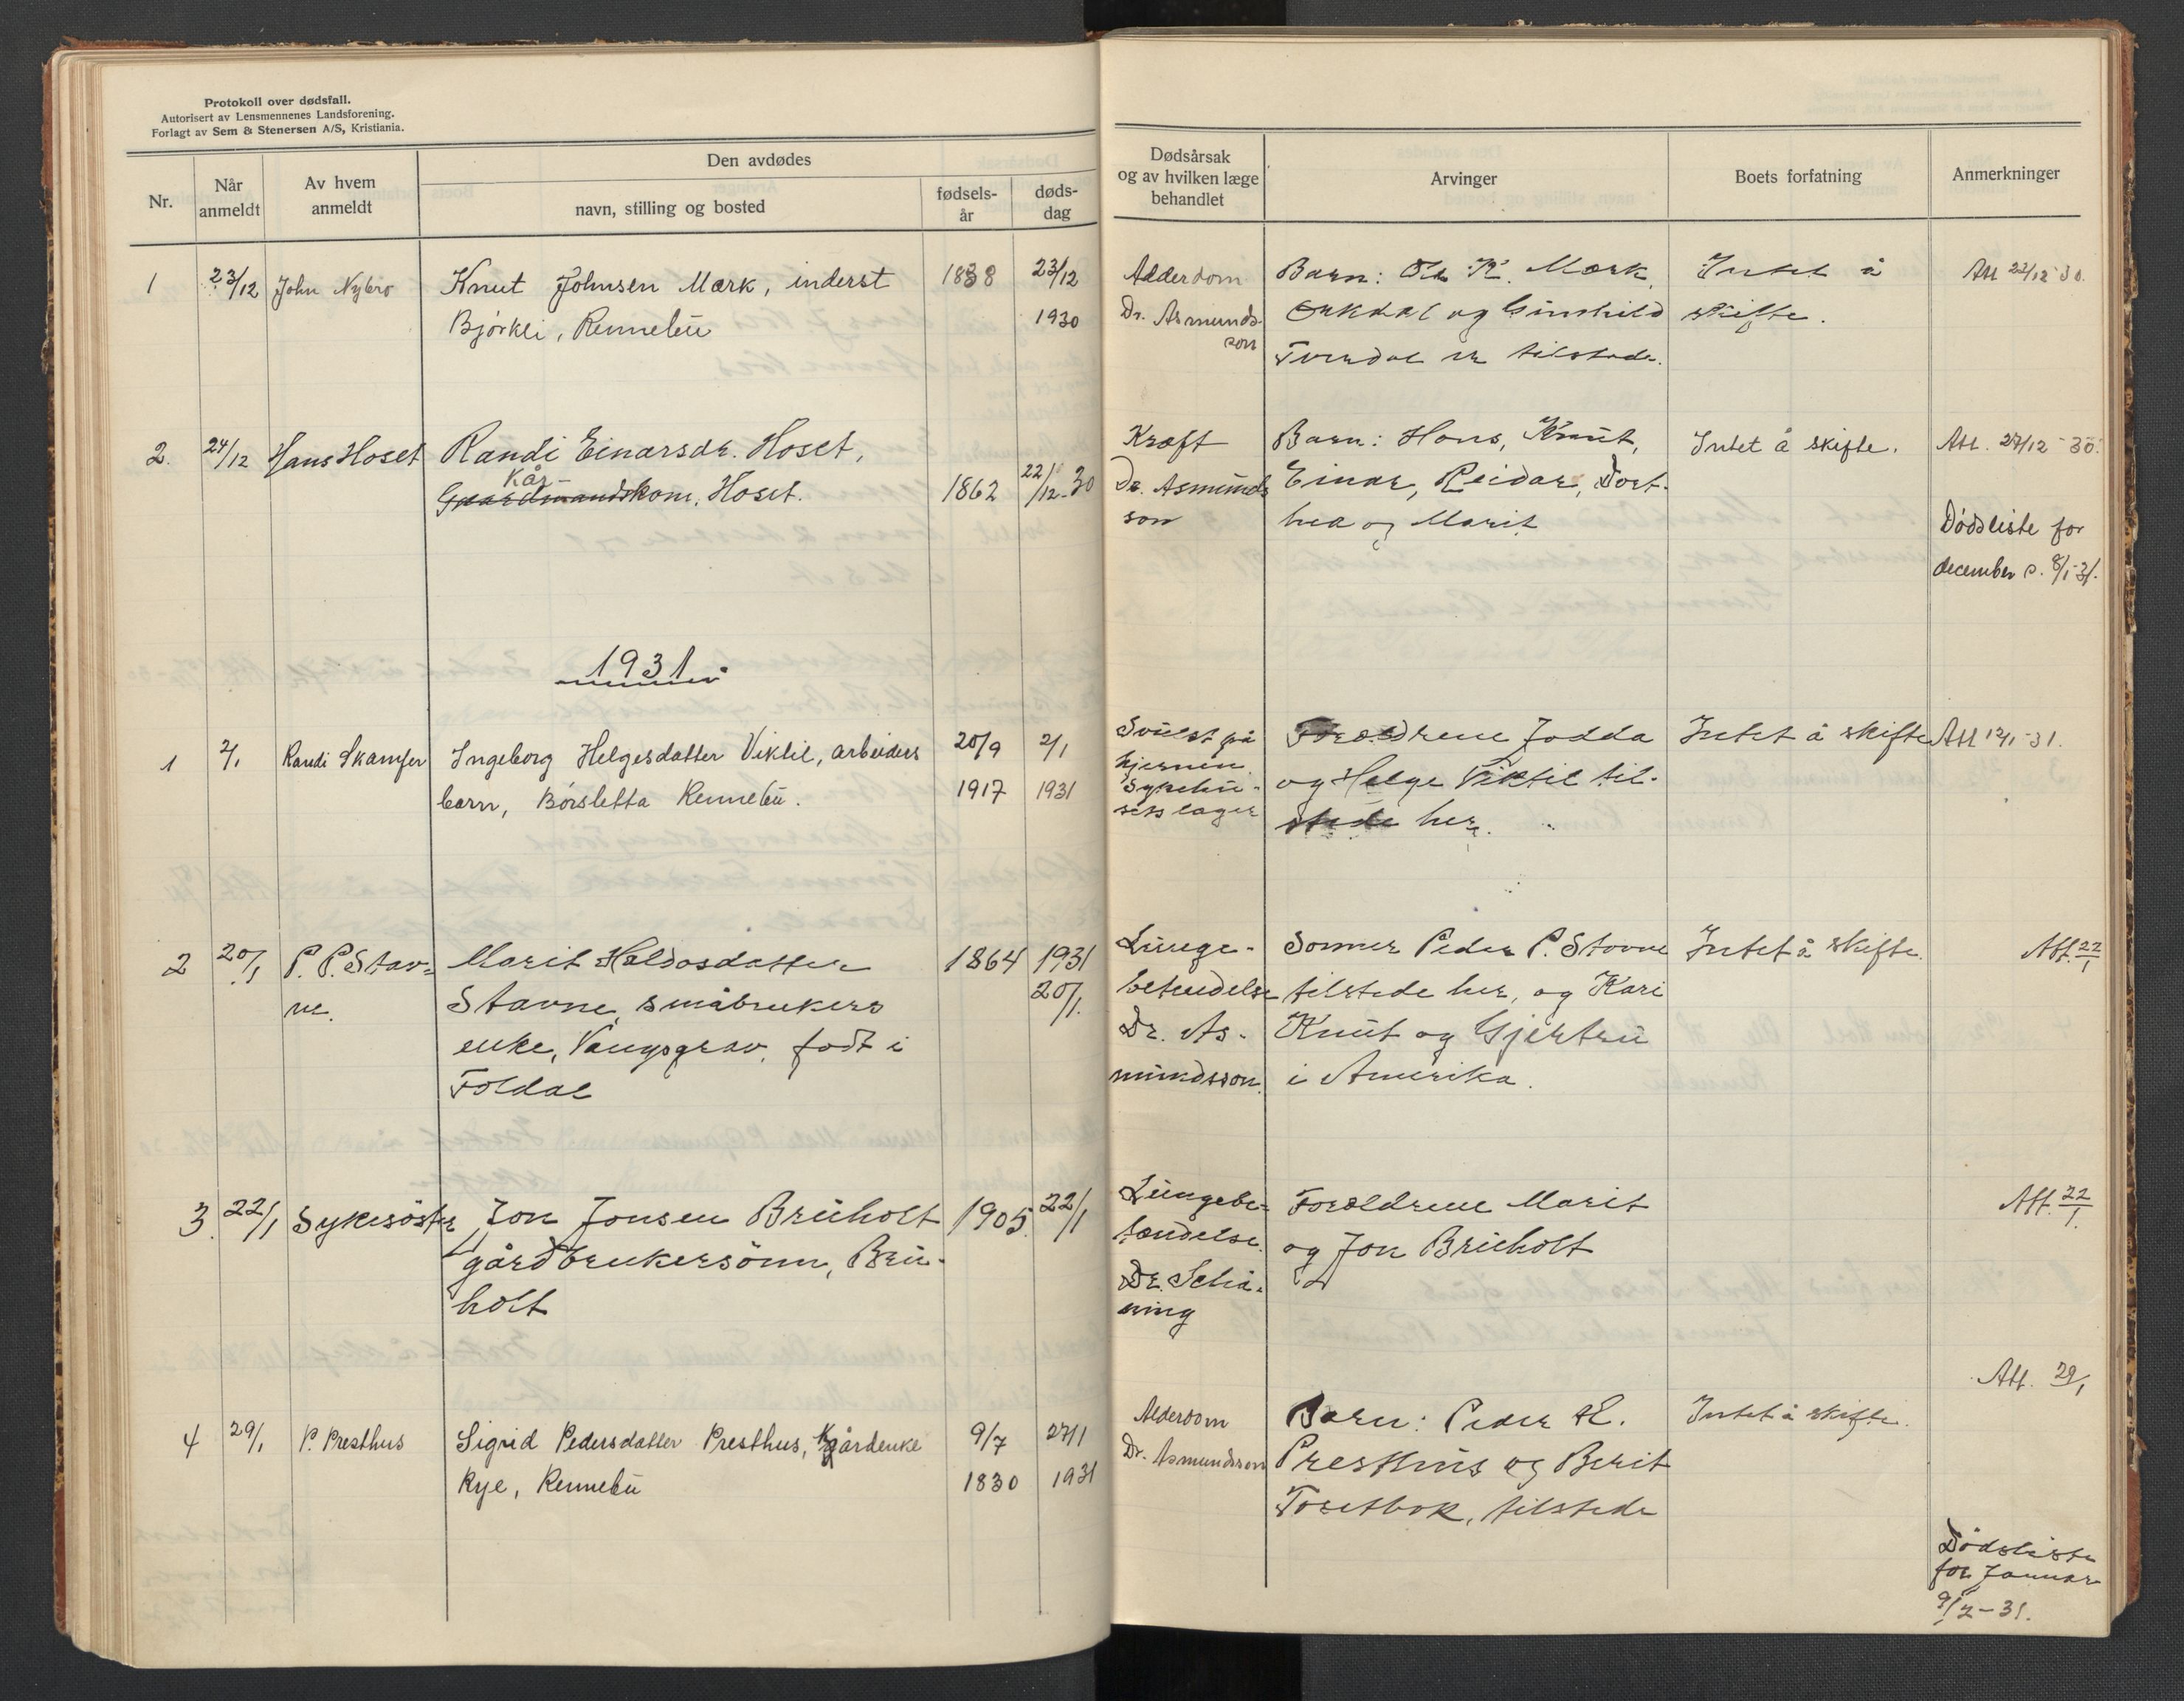 Protokoll over dødsfall.
Autorisert av Lensmennenes Landsforening.
Forlagt av Sem & Stenersen A/S, Kristiania.
Nr.
Når anmeldt
Av hvem anmeldt
Den avdødes
navn, stilling og bosted
fødselsår
dødsdag
Dødsårsak og av hvilken læge behandlet
Arvinger
Boets forfatning
Anmerkninger
1
23/12
John Nybro
Knut Johnsen Mærk, inderst
Bjørkli, Rennebu
1838
23/12
1930
Alderdom
Dr. Asmunds-
son
Barn: Ole K. Mærk,
Orkdal og Gunhild
Tverdal er tilstede.
Intet å
skifte.
Att 23/12 30.
2.
24/12
Hans Hoset
Randi Einarsdr. Hoset,
Kår-
Gaardmandskone, Hoset.
1862
22/12-30
Kræft
Dr. Asmunds
son
Barn: Hans, Knut,
Einar, Reidar, Dort-
hea og Marit
Intet å skifte.
Att. 24/12-30.
Dødsliste for
december s. 8/1-31.
1931
1
2/1
Randi Skamfer
Ingeborg Helgesdatter Viktil, arbeiders
barn, Børsletta Rennebu.
20/9
1917
2/1
1931
Svulst på
hjernen
Sykehu-
sets læger
Foreldrene Jodda
og Helge Viktil til-
stede her.
Intet å skifte
Att 12/1-31.
2
20/1
P. P. Stav-
ne.
Marit Haldosdatter
Stavne, småbrukers
enke, Vangsgrav, født i
Foldal
1864
1931
20/1.
Lunge-
betendelse
Dr. As-
mundsson
Sønner Peder P. Stavne
tilstede her, og Kari
Knut og Gjertru
i Amerika.
Intet å skifte.
Att. 22/1
3.
22/1
Sykesøster
Jon Jonsen Bruholt
gårdbrukersønn, Bru-
holt
1905.
22/1
Lungebe-
tændelse.
Dr. Schø-
ning
Foreldrene Marit
og Jon Bruholt
Att. 22/1.
4
29/1
P. Presthus
Sigrid Pedersdatter Presthus, kårdenke
Rye, Rennebu
9/7
1830
27/1
1931
Alderdom
Dr. Asmundsson
Barn: Peder H.
Presthus og Berit
Toretbak, tilstede
Intet å skifte.
Att. 29/1
Dødsliste
for Januar
9/2-31.